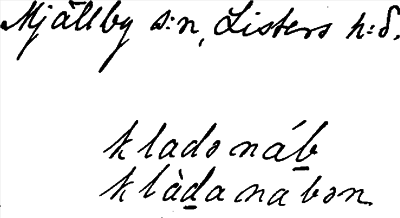 Mjällby s:n, Listers h:d.
kladənáb
klàdanabən